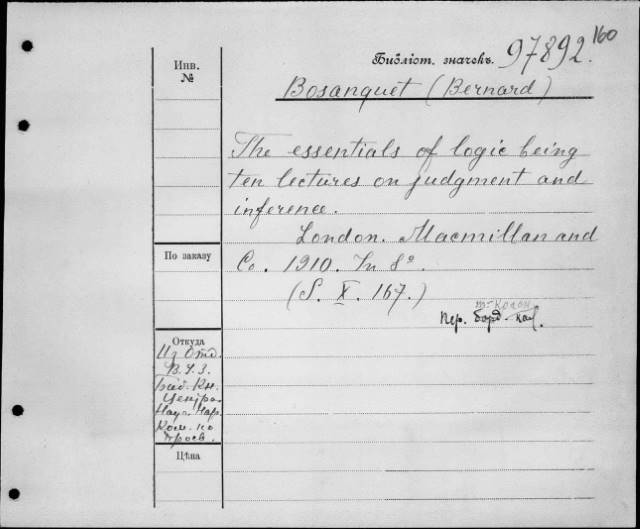 160
Библіот. значекъ. 97892.
Инв.
№
Bosanquet (Bernard)
The essentials of logic being
ten lectures on judgment and
inference.
London. Macmillan and
Co. 1910. In 8º.
(S. X. 167.)
Пер. борд.
По заказу
Откуда
Из Отд.
В.У.З.
Кн.
Центра.
Науч. Нар.
Ком. по
просв.
Цѣна